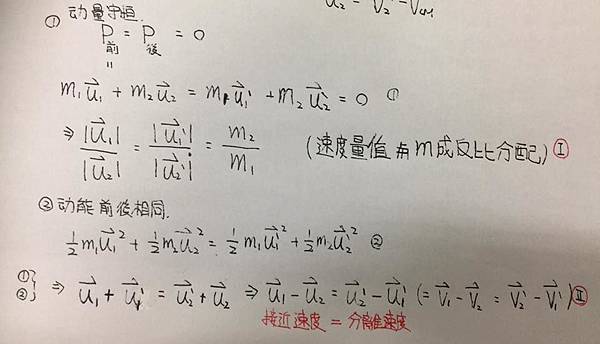 u₂ = V₂ - Vcm
① 动量守恒.
P前 = P後 = 0
"
m₁u⃗₁ + m₂u⃗₂ = m₁u⃗₁' + m₂u⃗₂' = 0 ①
⇒ |u⃗₁|/|u⃗₂| = |u⃗₁'|/|u⃗₂'| = m₂/m₁ (速度量值 与 m 成反比分配) Ⅰ
② 动能前後相同.
½m₁u⃗₁² + ½m₂u⃗₂² = ½m₁u⃗₁'² + ½m₂u⃗₂'² ②
①② } ⇒ u⃗₁ + u⃗₁' = u⃗₂' + u⃗₂ ⇒ u⃗₁ - u⃗₂ = u⃗₂' - u⃗₁' (= V⃗₁ - V⃗₂ = V⃗₂' - V⃗₁') Ⅱ
接近速度 = 分離速度